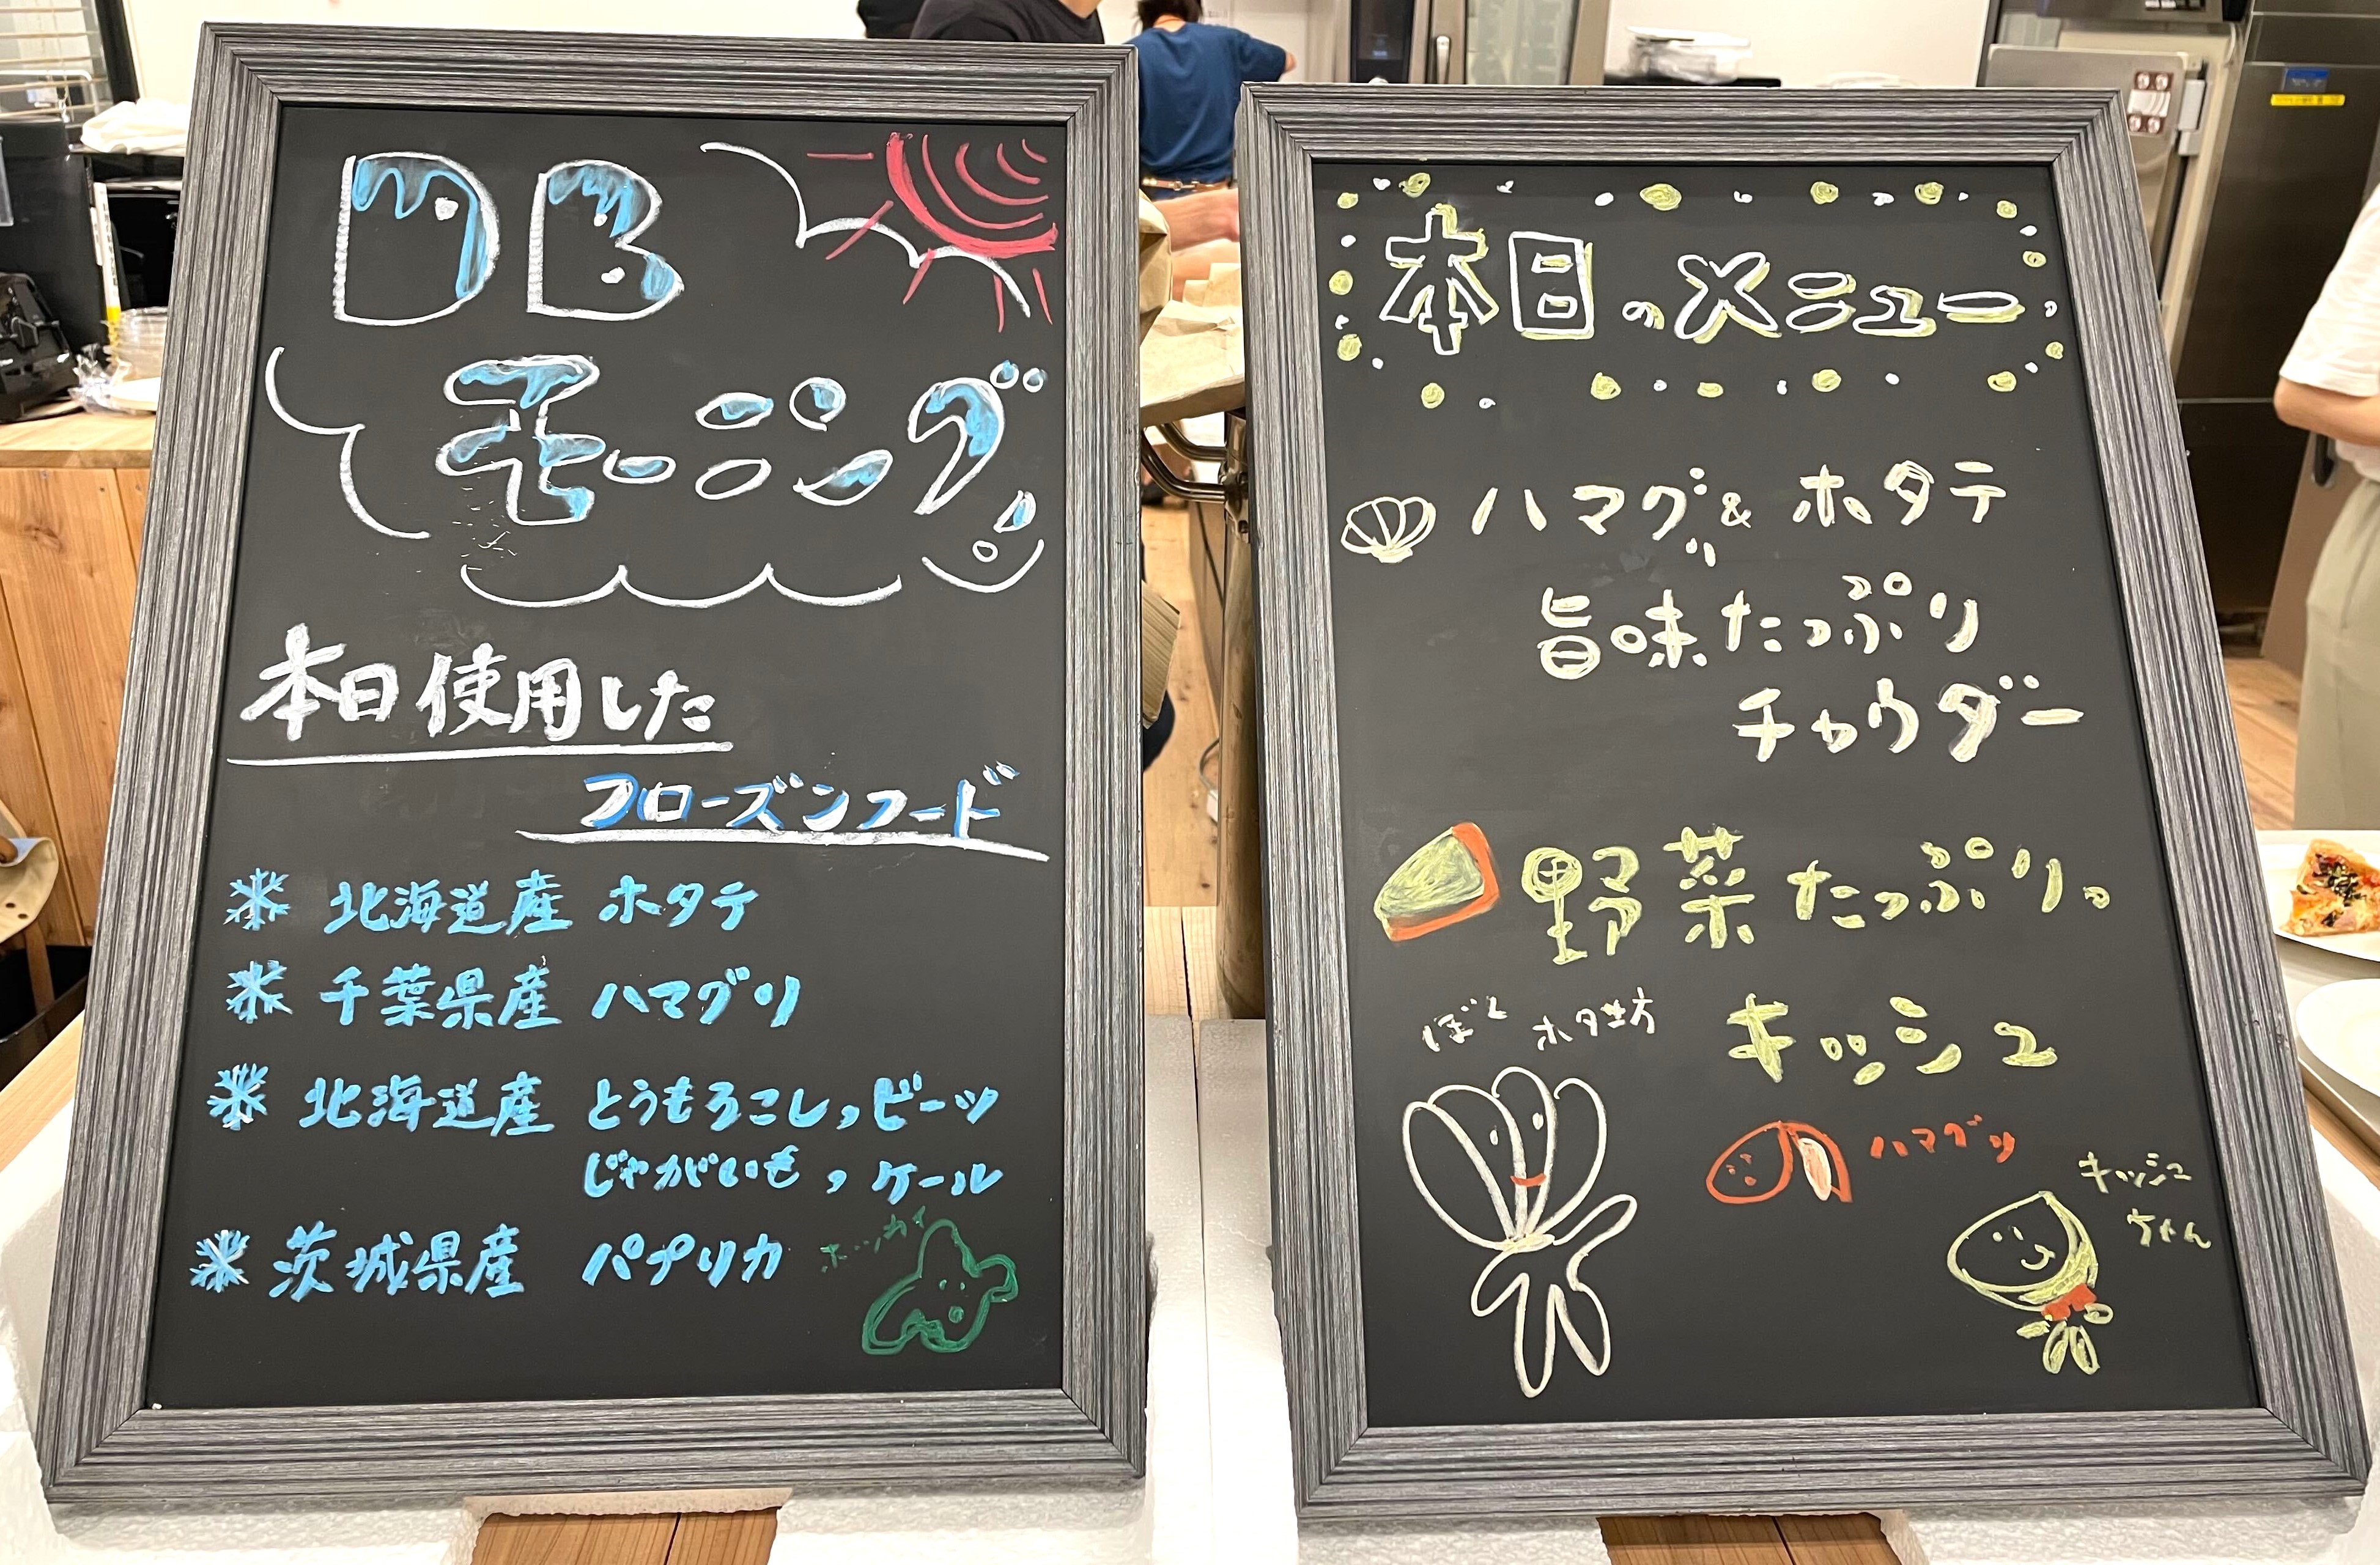 DB
モーニング
本日使用した
フローズンフード
北海道産 ホタテ
千葉県産 ハマグリ
北海道産 とうもろこし,ビーツ
じゃがいも,ケール
茨城県産 パプリカ
ホッカイ
本日のメニュー
ハマグリ&ホタテ
旨味たっぷり
チャウダー
野菜たっぷり。
キッシュ
ぼく ホタ坊
ハマグリ
キッシュ
ちゃん